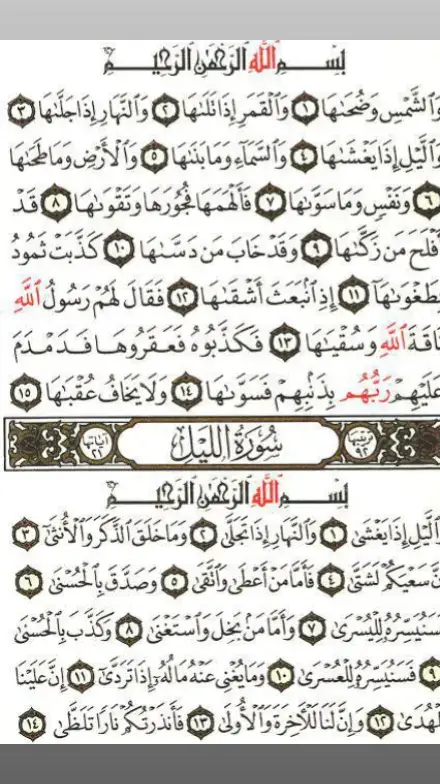 بِسْمِ اللَّهِ الرَّحْمَٰنِ الرَّحِيمِ
وَالشَّمْسِ وَضُحَاهَا ١ وَالْقَمَرِ إِذَا تَلَاهَا ٢ وَالنَّهَارِ إِذَا جَلَّاهَا ٣
وَاللَّيْلِ إِذَا يَغْشَاهَا ٤ وَالسَّمَاءِ وَمَا بَنَاهَا ٥ وَالْأَرْضِ وَمَا طَحَاهَا
٦ وَنَفْسٍ وَمَا سَوَّاهَا ٧ فَأَلْهَمَهَا فُجُورَهَا وَتَقْوَاهَا ٨ قَدْ
أَفْلَحَ مَن زَكَّاهَا ٩ وَقَدْ خَابَ مَن دَسَّاهَا ١٠ كَذَّبَتْ ثَمُودُ
بِطَغْوَاهَا ١١ إِذِ انبَعَثَ أَشْقَاهَا ١٢ فَقَالَ لَهُمْ رَسُولُ اللَّهِ
نَاقَةَ اللَّهِ وَسُقْيَاهَا ١٣ فَكَذَّبُوهُ فَعَقَرُوهَا فَدَمْدَمَ
عَلَيْهِمْ رَبُّهُم بِذَنبِهِمْ فَسَوَّاهَا ١٤ وَلَا يَخَافُ عُقْبَاهَا ١٥
ترتيبها ٩٢ سُورَةُ اللَّيْلِ آياتها ٢١
بِسْمِ اللَّهِ الرَّحْمَٰنِ الرَّحِيمِ
وَاللَّيْلِ إِذَا يَغْشَىٰ ١ وَالنَّهَارِ إِذَا تَجَلَّىٰ ٢ وَمَا خَلَقَ الذَّكَرَ وَالْأُنثَىٰ ٣
إِنَّ سَعْيَكُمْ لَشَتَّىٰ ٤ فَأَمَّا مَنْ أَعْطَىٰ وَاتَّقَىٰ ٥ وَصَدَّقَ بِالْحُسْنَىٰ ٦
فَسَنُيَسِّرُهُ لِلْيُسْرَىٰ ٧ وَأَمَّا مَن بَخِلَ وَاسْتَغْنَىٰ ٨ وَكَذَّبَ بِالْحُسْنَىٰ
٩ فَسَنُيَسِّرُهُ لِلْعُسْرَىٰ ١٠ وَمَا يُغْنِي عَنْهُ مَالُهُ إِذَا تَرَدَّىٰ ١١ إِنَّ عَلَيْنَا
لَلْهُدَىٰ ١٢ وَإِنَّ لَنَا لَلْآخِرَةَ وَالْأُولَىٰ ١٣ فَأَنذَرْتُكُمْ نَارًا تَلَظَّىٰ ١٤